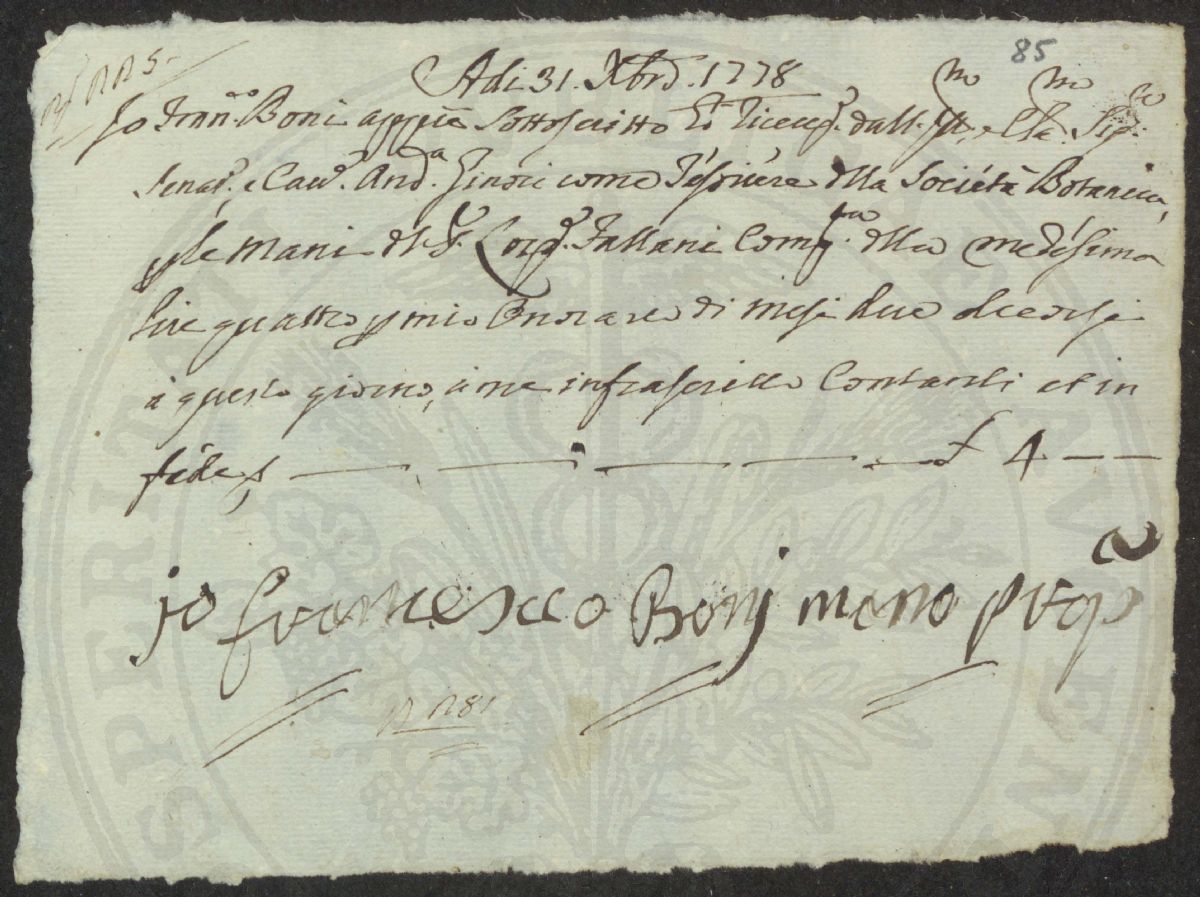 85
Adi 31. Xbre. 1778
Io Franco. Boni appiè Sottoscritto Ho Ricevo. dall. Illmo, e Clarmo Sigre.
Senat.e, e Cave. Anda. Ginori come Tesoriere della Società Botanica,
p le Mani del S. Tallani Compa. della medesima
lire quattro p mio Onorario di mesi due decorsi
a questo giorno, a me infrascritto Contanti et in
fede £ 4
io francesco Bonj mano propa